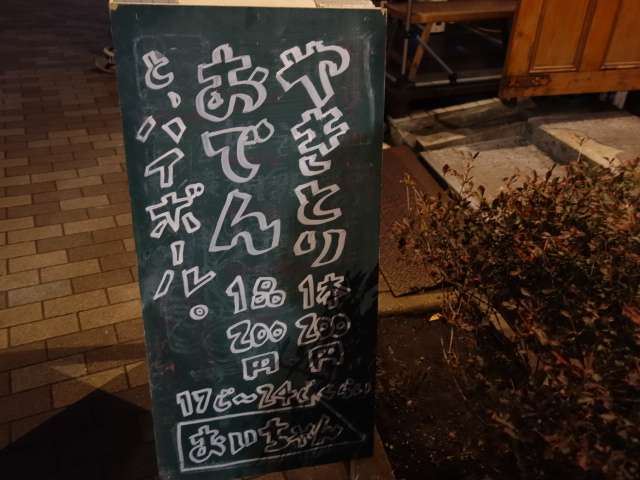 やきとり1本200円
おでん1品200円
と、ハイボール。
17じ〜24じくらい
まいちゃん